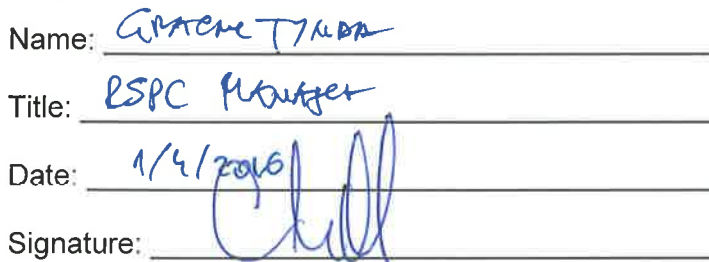 Name: GRAEME TYNDA
Title: RSPC Manager
Date: 1/4/2016
Signature: